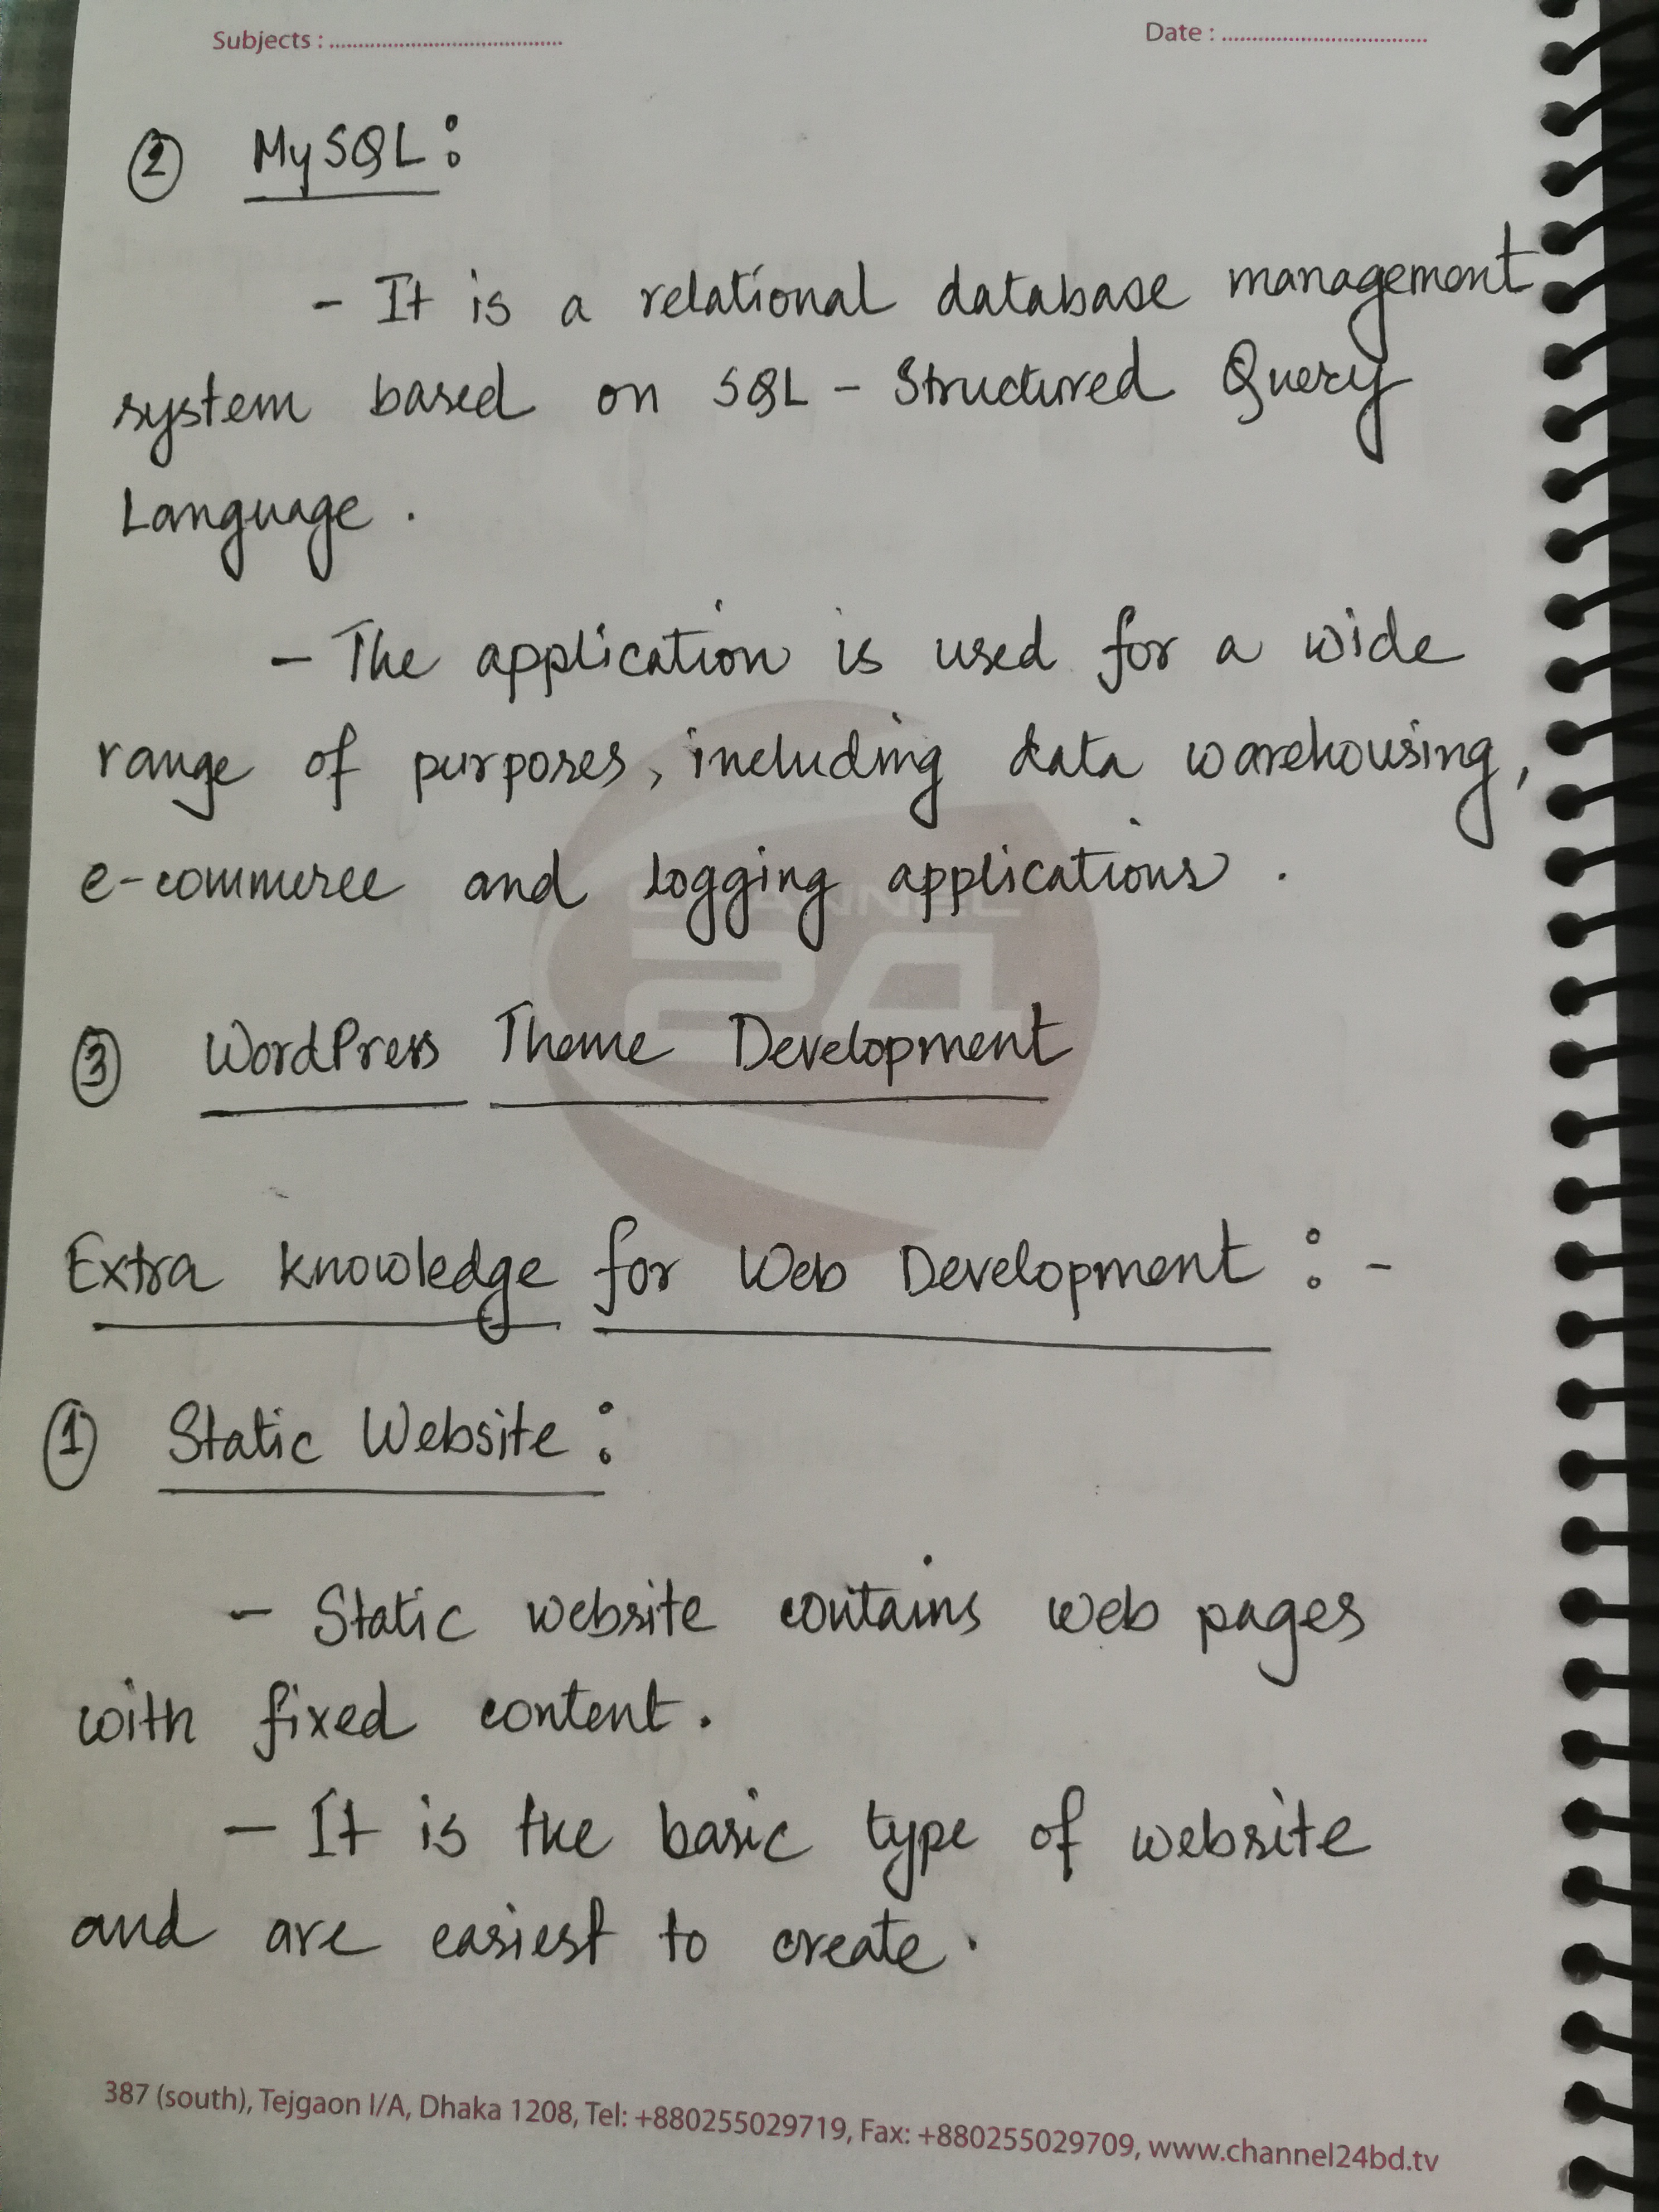 Subjects : ........................................ Date : ....................................
② MySQL :
- It is a relational database management
system based on SQL - Structured Query
Language .
- The application is used for a wide
range of purposes, including data warehousing,
e-commerce and logging applications .
CHANNEL
24
③ WordPress Theme Development
Extra knowledge for Web Development : -
① Static Website :
- Static website contains web pages
with fixed content .
- It is the basic type of website
and are easiest to create .
387 (south), Tejgaon I/A, Dhaka 1208, Tel: +880255029719, Fax: +880255029709, www.channel24bd.tv